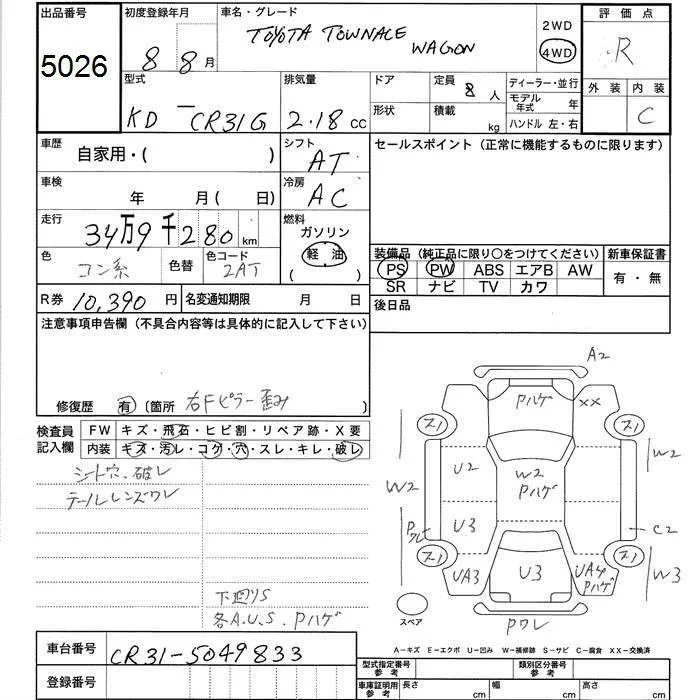 出品番号 初度登録年月 車名・グレード 2WD 評価点
5026 8 8月 TOYOTA TOWNACE WAGON 4WD R
型式 排気量 ドア 定員 8人 ディーラー・並行 外装 内装
KD-CR31G 2.18cc 形状 積載 kg モデル年式 年 C
ハンドル 左・右
車歴 自家用・( ) シフト AT セールスポイント(正常に機能するものに限ります)
車検 年 月( 日) 冷房 AC
走行 34万9千280km 燃料 ガソリン
軽油
( )
色 コン系 色替 色コード 2AT
装備品(純正品に限り○をつけてください) 新車保証書
PS PW ABS エアB AW 有・無
SR ナビ TV カワ
R券 10,390円 名変通知期限 月 日 後日品
注意事項申告欄(不具合内容等は具体的に記入して下さい)
修復歴 有(箇所 右Fピラー歪み )
検査員記入欄 FW キズ・飛石・ヒビ割・リペア跡・X要
内装 キズ・汚レ・コゲ・穴・スレ・キレ・破レ
シート穴、破レ
テールレンズワレ
下廻りS
各A.U.S.Pハゲ
A2
Pハゲ XX
スリ スリ
W2 U2 W2 Pハゲ W2
Pワレ U3 C2
スリ スリ
UA3 U3 UA4 Pハゲ W3
スペア Pワレ
A−キズ E−エクボ U−凹み W−補修跡 S−サビ C−腐食 XX−交換済
車台番号 CR31-5049833
登録番号
型式指定番号 参考 類別区分番号 参考
車庫証明用 参考 長さ cm 幅 cm 高さ cm